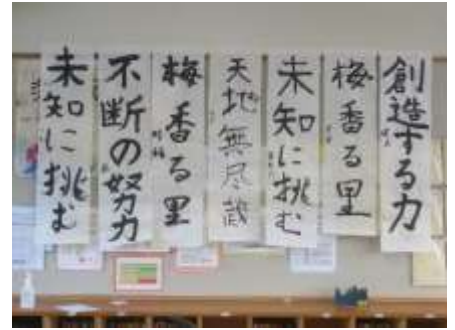 創造する力
梅香る里
未知に挑む
天地無尽蔵
梅香る里
不断の努力
未知に挑む